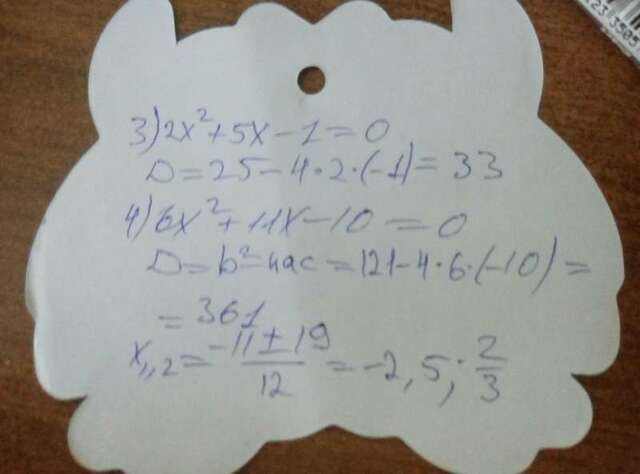 3) 2x²+5x-1=0
D=25-4·2·(-1)=33
4) 6x²+11x-10=0
D=b²-4ac=121-4·6·(-10)=
=361
x₁,₂=(-11±19)/12=-2,5; 2/3